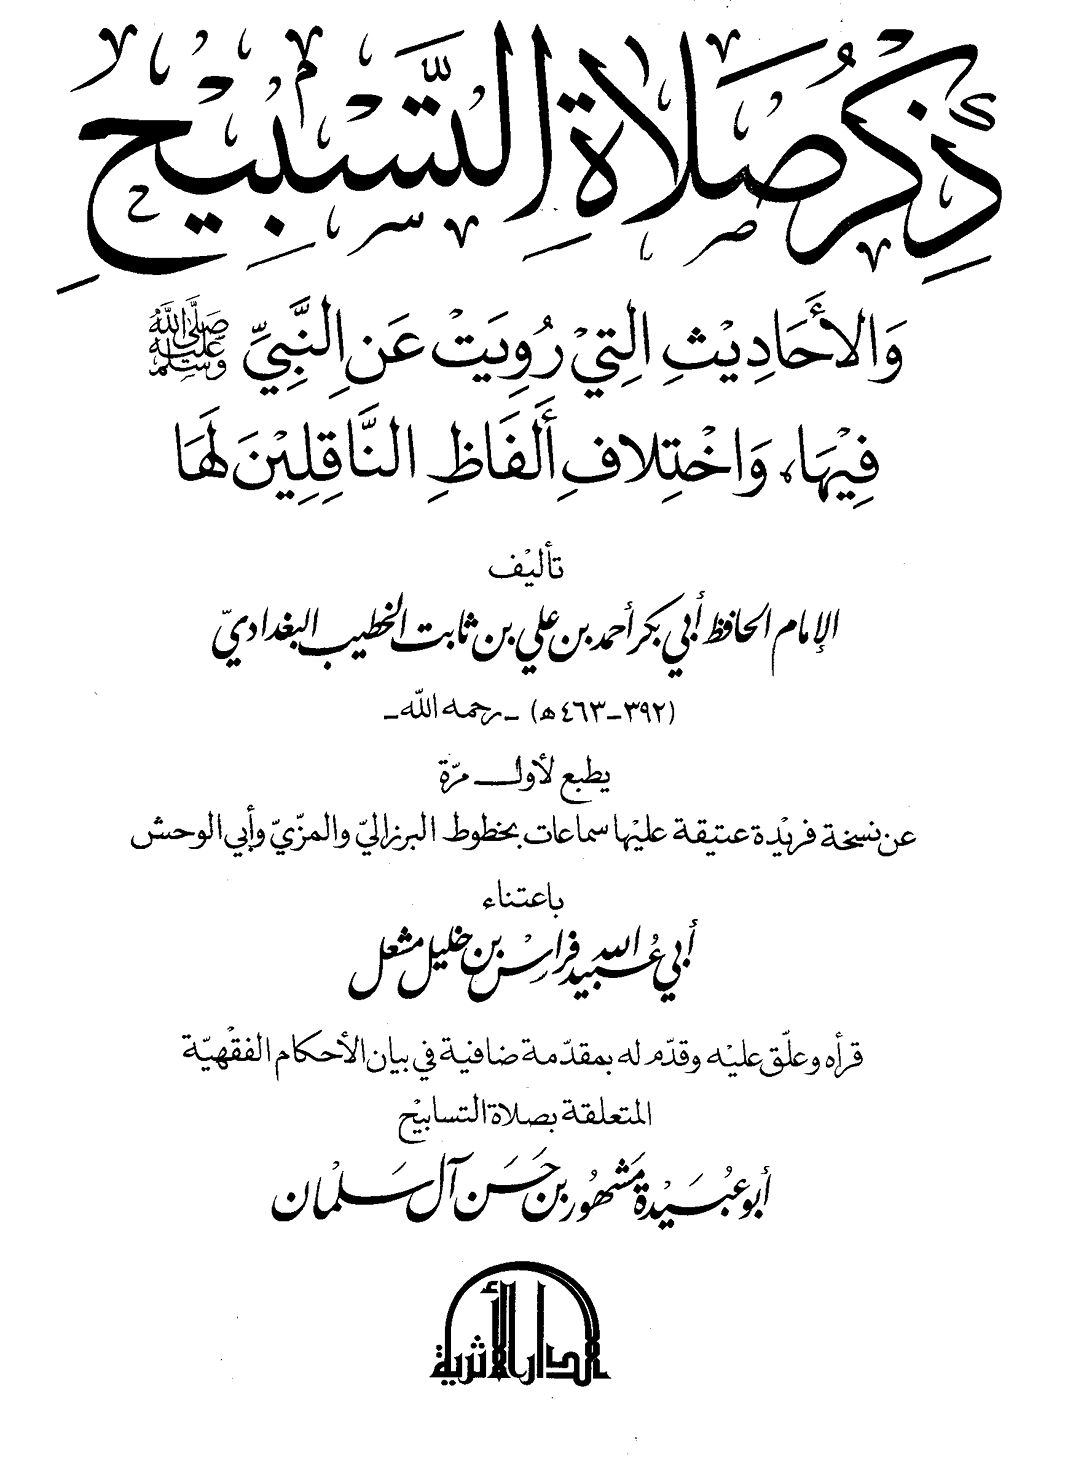 ذِكْرُ صَلَاةِ التَّسْبِيْحِ
وَالأَحَادِيْثِ الَّتِيْ رُوِيَتْ عَنِ النَّبِيِّ ﷺ
فِيْهَا، وَاخْتِلافِ أَلفَاظِ النَّاقِلِيْنَ لَهَا
تأليْف
الإمام الحافظ أبي بكر أحمد بن علي بن ثابت الخطيب البغداديّ
(٣٩٢-٤٦٣ هـ) - رحمه اللّه -
يطبع لأول مرّة
عن نسخة فريْدة عتيقة عليْها سماعات بخطوط البرزاليّ والمزّيّ وأبي الوحش
باعتناء
أبي عُبيد اللّه فراس بن خليل مشعل
قرأه وعلّق عليْه وقدّم له بمقدّمة ضافية في بيان الأحكام الفقْهيّة
المتعلقة بصلاة التسابيْح
أبو عُبَيْدة مَشْهُور بن حَسَن آل سَلْمان
الدار الأثرية